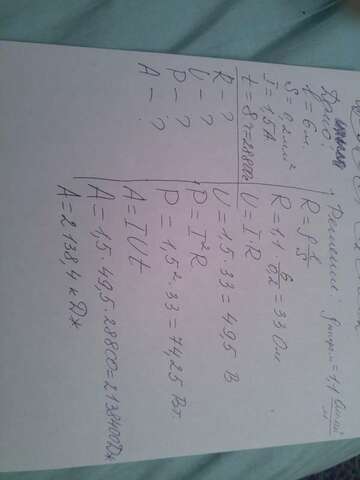 Дано:
l = 6 м.
S = 0,2 мм²
I = 1,5 А
t = 8 ч = 28800
R - ?
U - ?
P - ?
A - ?
Решение: ρнихром = 1,1
R = ρ l/S
R = 1,1 · 6/0,2 = 33 Ом
U = IR
U = 1,5 · 33 = 49,5 В
P = I²R
P = 1,5² · 33 = 74,25 Вт.
A = IUt
A = 1,5 · 49,5 · 28800 = 2138400 Дж
A = 2138,4 кДж